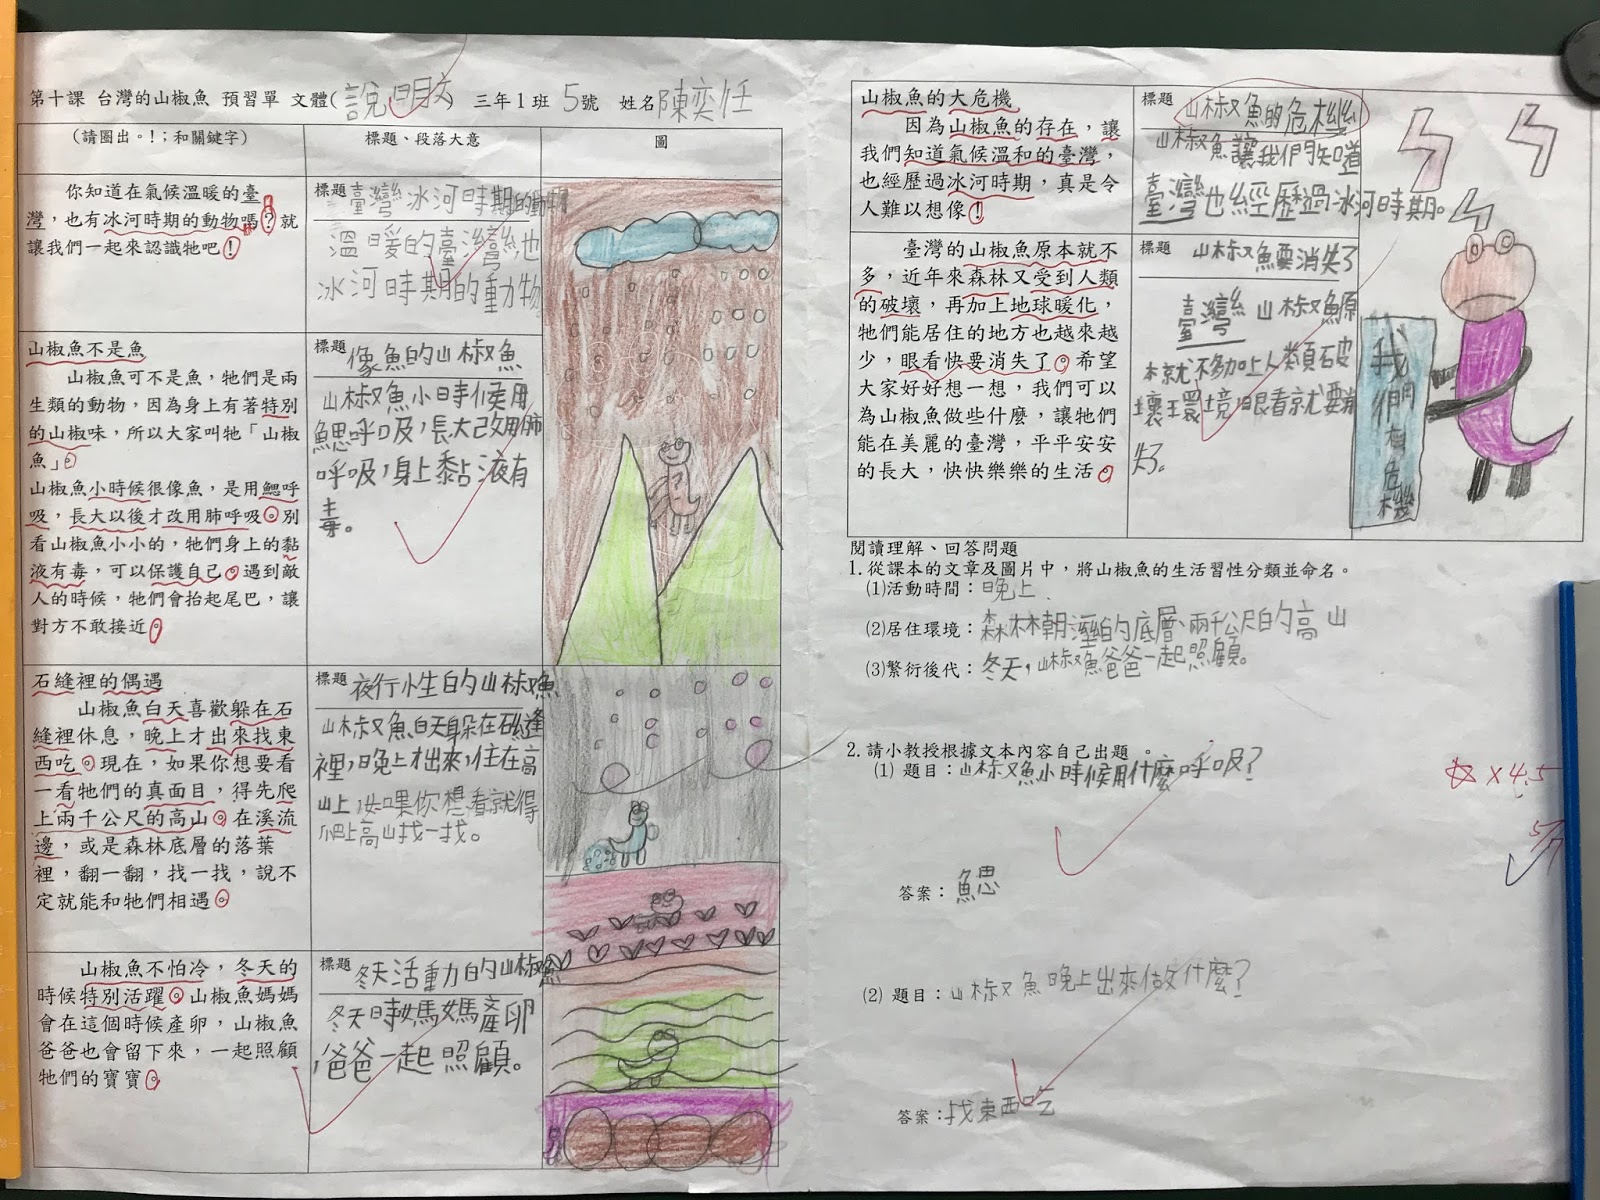 第十課 台灣的山椒魚 預習單 文體(說明文) 三年1班 5號 姓名陳奕任
(請圈出。!;和關鍵字)
標題、段落大意
圖
你知道在氣候溫暖的臺
灣,也有冰河時期的動物嗎?就
讓我們一起來認識牠吧!
標題
臺灣冰河時期的動物
溫暖的臺灣也
冰河時期的動物
山椒魚不是魚
山椒魚可不是魚,牠們是兩
生類的動物,因為身上有著特別
的山椒味,所以大家叫牠「山椒
魚」。
山椒魚小時候很像魚,是用鰓呼
吸,長大以後才改用肺呼吸。別
看山椒魚小小的,牠們身上的黏
液有毒,可以保護自己。遇到敵
人的時候,牠們會抬起尾巴,讓
對方不敢接近。
標題
像魚的山椒魚
山椒魚小時候用
鰓呼吸,長大改用肺
呼吸,身上黏液有
毒。
石縫裡的偶遇
山椒魚白天喜歡躲在石
縫裡休息,晚上才出來找東
西吃。現在,如果你想要看
一看牠們的真面目,得先爬
上兩千公尺的高山。在溪流
邊,或是森林底層的落葉
裡,翻一翻,找一找,說不
定就能和牠們相遇。
標題
夜行性的山椒魚
山椒魚白天躲在石縫
裡,晚上才出來,住在高
山上,如果你想看就得
爬上高山找一找。
山椒魚不怕冷,冬天的
時候特別活躍。山椒魚媽媽
會在這個時候產卵,山椒魚
爸爸也會留下來,一起照顧
牠們的寶寶。
標題
冬天活動的山椒魚
冬天時媽媽產卵
,爸爸一起照顧。
山椒魚的大危機
因為山椒魚的存在,讓
我們知道氣候溫和的臺灣,
也經歷過冰河時期,真是令
人難以想像!
標題
山椒魚的危機
山椒魚讓我們知道
臺灣也經歷過冰河時期。
臺灣的山椒魚原本就不
多,近年來森林又受到人類
的破壞,再加上地球暖化,
牠們能居住的地方也越來越
少,眼看快要消失了。希望
大家好好想一想,我們可以
為山椒魚做些什麼,讓牠們
能在美麗的臺灣,平平安安
的長大,快快樂樂的生活。
標題
山椒魚要消失了
臺灣山椒魚原
本就不多加上人類破
壞環境,眼看就要消
失了。
我們有危機
閱讀理解、回答問題
1.從課本的文章及圖片中,將山椒魚的生活習性分類並命名。
(1)活動時間:晚上
(2)居住環境:森林潮溼的底層、兩千公尺的高山
(3)繁衍後代:冬天,山椒魚爸爸一起照顧。
2.請小教授根據文本內容自己出題。
(1) 題目:山椒魚小時候用什麼呼吸?
答案:鰓
(2) 題目:山椒魚晚上出來做什麼?
答案:找東西吃
☆×4.5
5/7